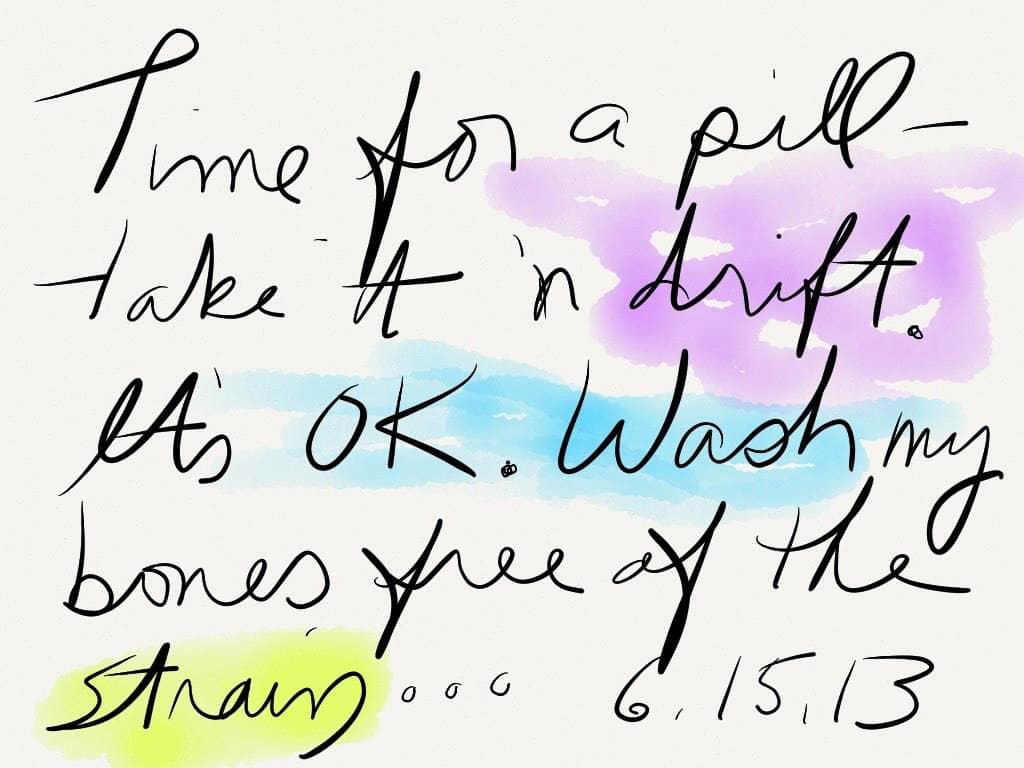 Time for a pill—
take it 'n drift.
It's OK. Wash my
bones free of the
strain... 6.15.13